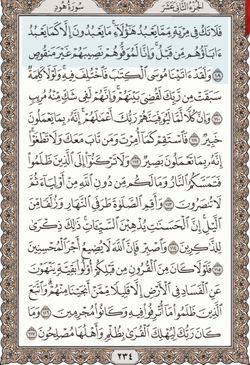 الجزء الثاني عشر
سورة هود
فَلَا تَكُ فِي مِرْيَةٍ مِّمَّا يَعْبُدُ هَٰؤُلَاءِ مَا يَعْبُدُونَ إِلَّا كَمَا يَعْبُدُ
ءَابَاؤُهُم مِّن قَبْلُ وَإِنَّا لَمُوَفُّوهُمْ نَصِيبَهُمْ غَيْرَ مَنقُوصٍ
١٠٩ وَلَقَدْ ءَاتَيْنَا مُوسَى الْكِتَٰبَ فَاخْتُلِفَ فِيهِ وَلَوْلَا كَلِمَةٌ
سَبَقَتْ مِن رَّبِّكَ لَقُضِيَ بَيْنَهُمْ وَإِنَّهُمْ لَفِي شَكٍّ مِّنْهُ مُرِيبٍ
١١٠ وَإِنَّ كُلًّا لَّمَّا لَيُوَفِّيَنَّهُمْ رَبُّكَ أَعْمَٰلَهُمْ إِنَّهُ بِمَا يَعْمَلُونَ
خَبِيرٌ ١١١ فَاسْتَقِمْ كَمَا أُمِرْتَ وَمَن تَابَ مَعَكَ وَلَا تَطْغَوْا
إِنَّهُ بِمَا تَعْمَلُونَ بَصِيرٌ ١١٢ وَلَا تَرْكَنُوا إِلَى الَّذِينَ ظَلَمُوا
فَتَمَسَّكُمُ النَّارُ وَمَا لَكُم مِّن دُونِ اللَّهِ مِنْ أَوْلِيَاءَ ثُمَّ
لَا تُنصَرُونَ ١١٣ وَأَقِمِ الصَّلَوٰةَ طَرَفَيِ النَّهَارِ وَزُلَفًا مِّنَ
الَّيْلِ إِنَّ الْحَسَنَٰتِ يُذْهِبْنَ السَّيِّـَٔاتِ ذَٰلِكَ ذِكْرَىٰ
لِلذَّٰكِرِينَ ١١٤ وَاصْبِرْ فَإِنَّ اللَّهَ لَا يُضِيعُ أَجْرَ الْمُحْسِنِينَ
١١٥ فَلَوْلَا كَانَ مِنَ الْقُرُونِ مِن قَبْلِكُمْ أُولُوا بَقِيَّةٍ يَنْهَوْنَ
عَنِ الْفَسَادِ فِي الْأَرْضِ إِلَّا قَلِيلًا مِّمَّنْ أَنجَيْنَا مِنْهُمْ وَاتَّبَعَ
الَّذِينَ ظَلَمُوا مَا أُتْرِفُوا فِيهِ وَكَانُوا مُجْرِمِينَ ١١٦ وَمَا
كَانَ رَبُّكَ لِيُهْلِكَ الْقُرَىٰ بِظُلْمٍ وَأَهْلُهَا مُصْلِحُونَ ١١٧
٢٣٤